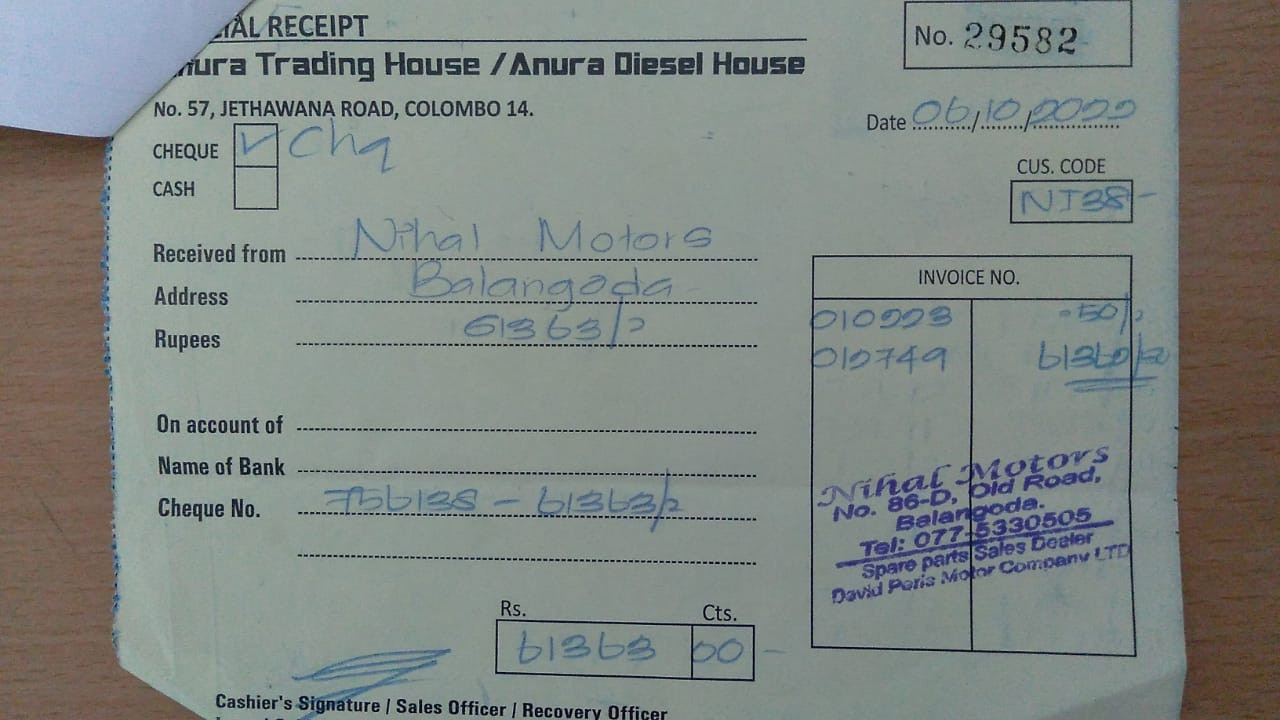 IAL RECEIPT
No. 29582
nura Trading House / Anura Diesel House
No. 57, JETHAWANA ROAD, COLOMBO 14.
Date 06/10/2022
CHEQUE ✓ Chq
CASH
CUS. CODE
NI38-
Received from Nihal Motors
Address Balangoda
Rupees 61363/=
INVOICE NO.
010223 -50/=
012749
On account of
Name of Bank
Cheque No. 756138 - 61363/=
Nihal Motors
No. 86-D, Old Road,
Balangoda.
Tel: 077-5330505
Spare parts Sales Dealer
David Peris Motor Company LTD
Rs. Cts.
61363 00 -
Cashier's Signature / Sales Officer / Recovery Officer